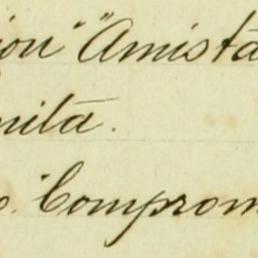 ion" "Amista
nita.
o. Comprom